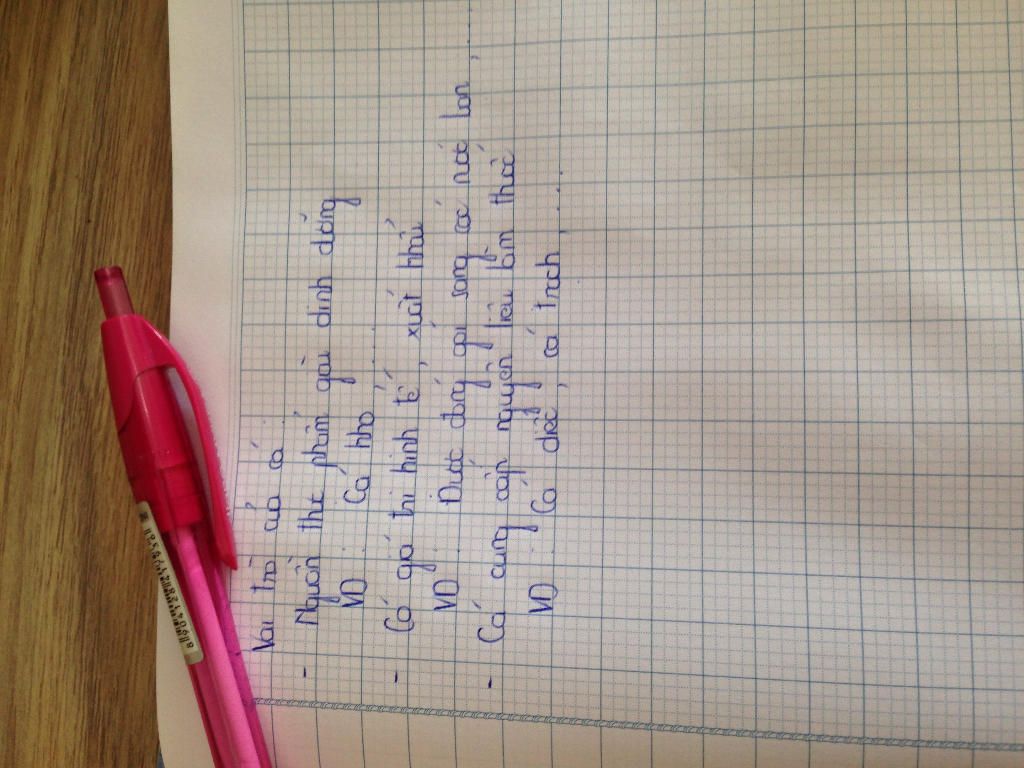 Vai trò của cá
- Nguồn thực phẩm giàu dinh dưỡng
VD Cá kho
- Có giá trị kinh tế, xuất khẩu
VD Được đóng gói sang các nước lớn,
- Cá cung cấp nguyên liệu làm thuốc
VD Cá diếc, cá trạch, ....